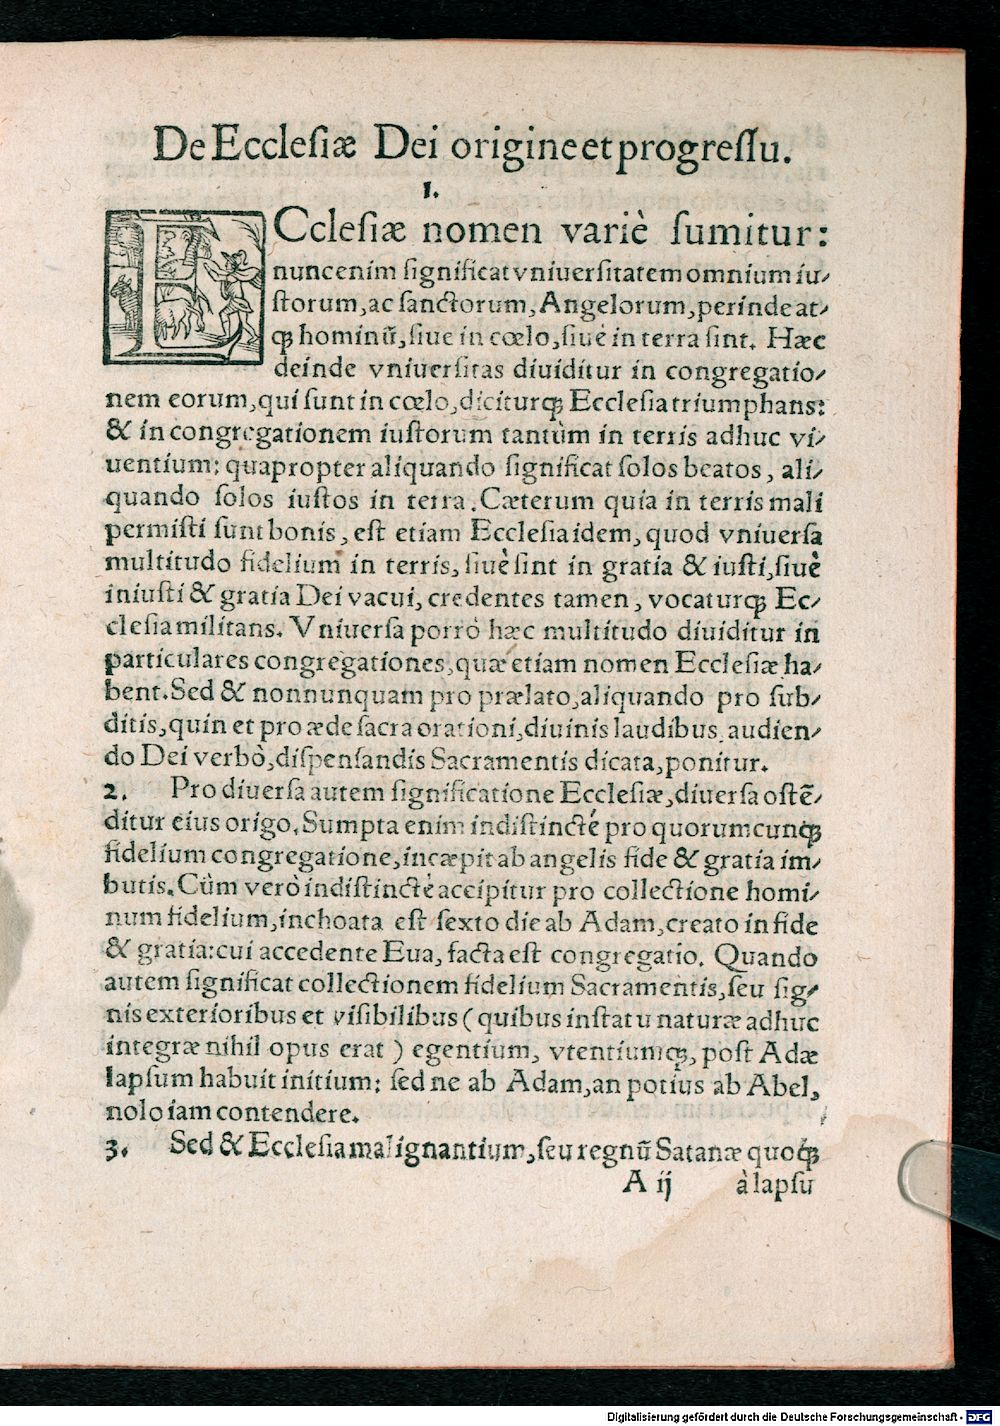 De Ecclesiæ Dei origine et progressu.
1.
ECclesiæ nomen variè sumitur:
nunc enim significat vniuersitatem omnium iu-
storum, ac sanctorum, Angelorum, perinde at-
q́; hominũ, siue in cœlo, siue in terra sint. Hæc
deinde vniuersitas diuiditur in congregatio-
nem eorum, qui sunt in cœlo, diciturq́; Ecclesia triumphans:
& in congregationem iustorum tantùm in terris adhuc vi-
uentium: quapropter aliquando significat solos beatos, ali-
quando solos iustos in terra. Cæterum quia in terris mali
permisti sunt bonis, est etiam Ecclesia idem, quod vniuersa
multitudo fidelium in terris, siuè sint in gratia & iusti, siuè
iniusti & gratia Dei vacui, credentes tamen, vocaturq́; Ec-
clesia militans. Vniuersa porrò hæc multitudo diuiditur in
particulares congregationes, quæ etiam nomen Ecclesiæ ha-
bent. Sed & nonnunquam pro prælato, aliquando pro sub-
ditis, quin et pro æde sacra orationi, diuinis laudibus, audien-
do Dei verbò, dispensandis Sacramentis dicata, ponitur.
2. Pro diuersa autem significatione Ecclesiæ, diuersa ostẽ-
ditur eius origo. Sumpta enim indistinctè pro quorumcunq́;
fidelium congregatione, incæpit ab angelis fide & gratia im-
butis. Cùm verò indistinctè accipitur pro collectione homi-
num fidelium, inchoata est sexto die ab Adam, creato in fide
& gratia: cui accedente Eua, facta est congregatio. Quando
autem significat collectionem fidelium Sacramentis, seu sig-
nis exterioribus et visibilibus (quibus in statu naturæ adhuc
integræ nihil opus erat) egentium, vtentiumq́;, post Adæ
lapsum habuit initium: sed ne ab Adam, an potius ab Abel,
nolo iam contendere.
3. Sed & Ecclesia malignantium, seu regnũ Satanæ quoq́;
A ij à lapsu
Digitalisierung gefördert durch die Deutsche Forschungsgemeinschaft - DFG